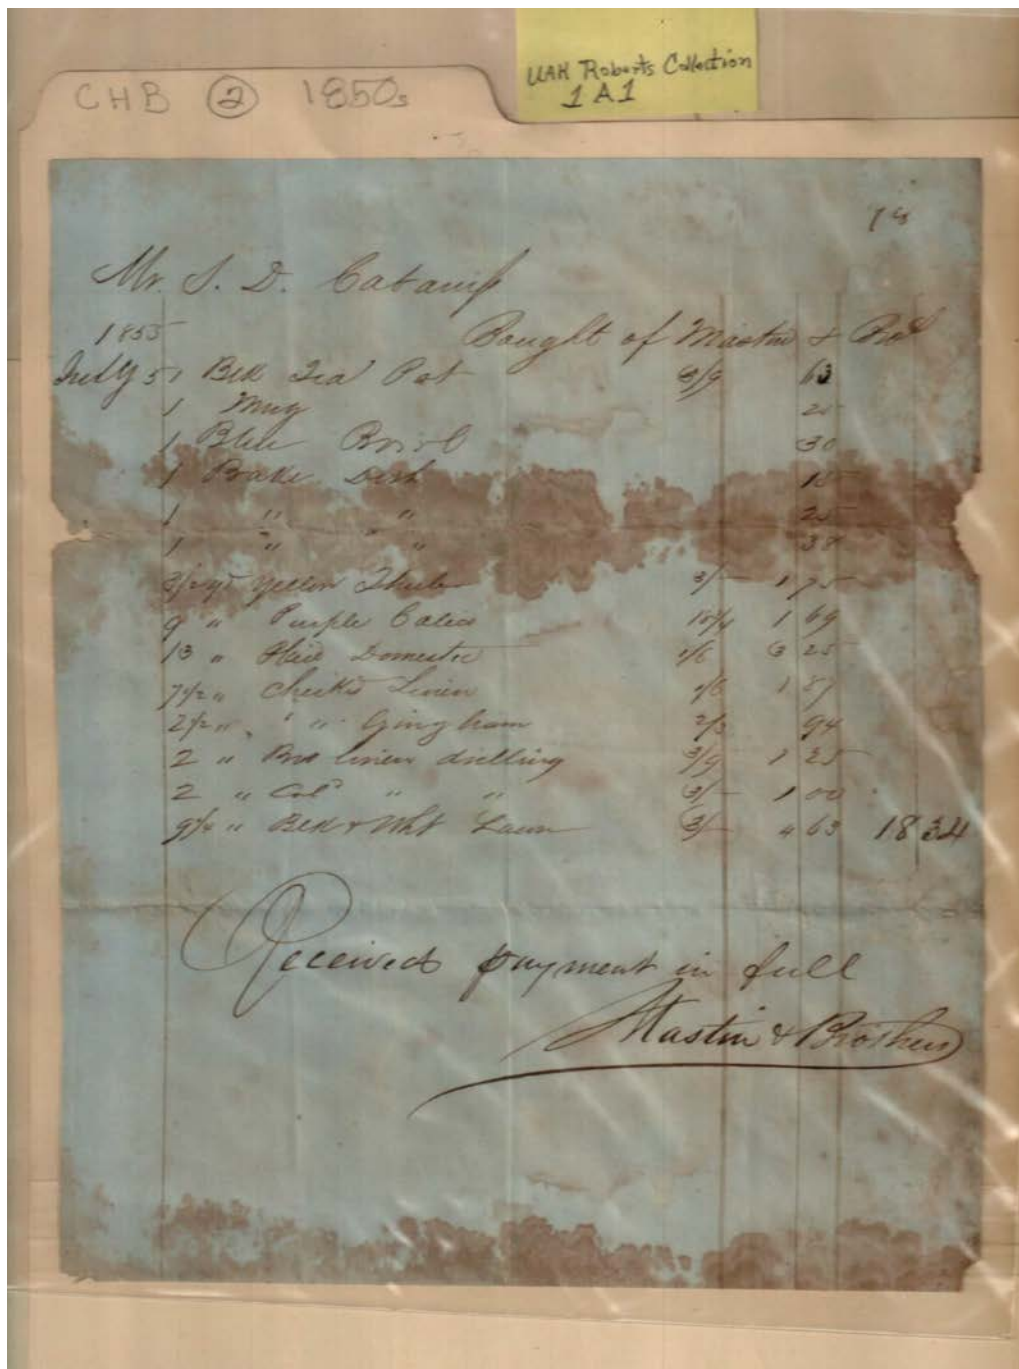 UAH Roberts Collection
1A1
CHB ② 1850s
Mr. S. D. Cabaniss
1855 Bought of Mastin & Bro
July 5 1 Blk Tea Pot 3/9 63
1 Mug 25
1 Blue 30
1 Bake Dish 15
1 " " 25
1 " " 38
3 1/2 yds Yellow 3/- 1 75
9 " Purple Calico 1 69
13 " Plaid Domestic 1/6 3 25
7 1/2 " Check'd Linen 1/6 1 87
2 1/2 " " Gingham 2/3 94
2 " Bro linen drilling 3/9 1 25
2 " Col'd " " 3/- 1 00
9 1/4 " Blk & Wht Lawn 3/- 4 63 18 34
Received payment in full
Mastin & Brothers